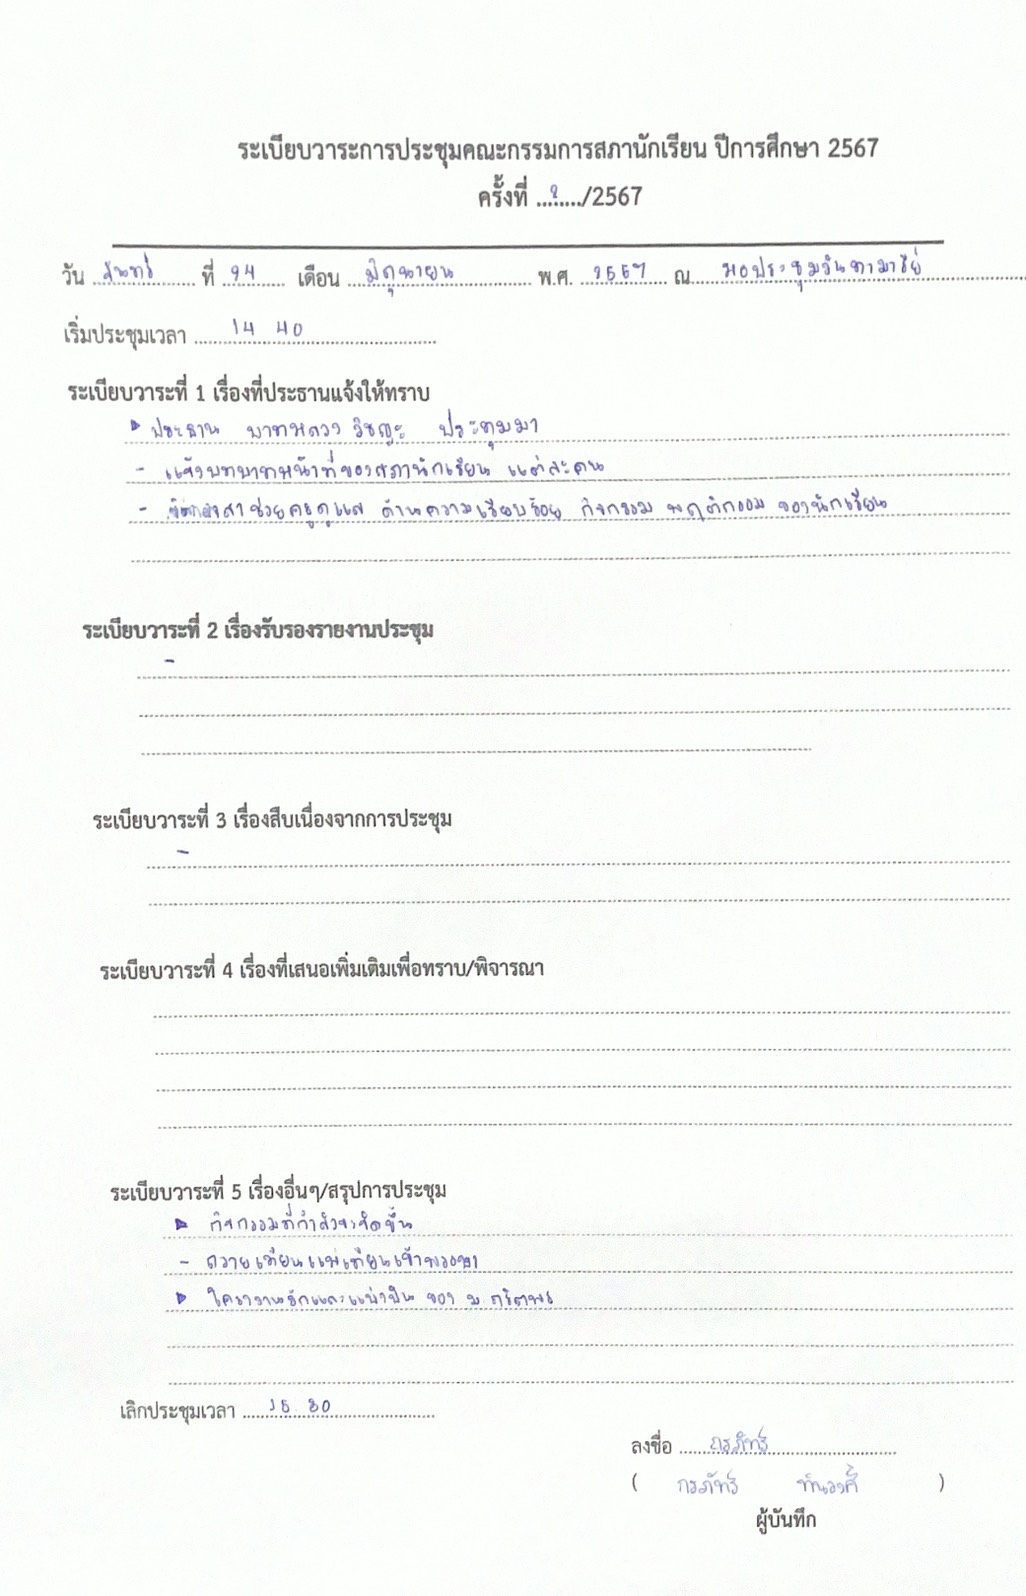 ระเบียบวาระการประชุมคณะกรรมการสภานักเรียน ปีการศึกษา 2567
ครั้งที่ ...2..../2567
วัน จันทร์ ที่ 24 เดือน มิถุนายน พ.ศ. 2567 ณ หอประชุมวันทามารีย์
เริ่มประชุมเวลา 14 40
ระเบียบวาระที่ 1 เรื่องที่ประธานแจ้งให้ทราบ
ประธาน บาทหลวง วิชญะ ประทุมมา
- แจ้งบทบาทหน้าที่ของสภานักเรียน แต่ละคน
- จิตอาสาช่วยครูดูแล ด้านความเรียบร้อย กิจกรรม พฤติกรรม ของนักเรียน
ระเบียบวาระที่ 2 เรื่องรับรองรายงานประชุม
-
ระเบียบวาระที่ 3 เรื่องสืบเนื่องจากการประชุม
-
ระเบียบวาระที่ 4 เรื่องที่เสนอเพิ่มเติมเพื่อทราบ/พิจารณา
ระเบียบวาระที่ 5 เรื่องอื่นๆ/สรุปการประชุม
กิจกรรมที่กำลังจะจัดขึ้น
- ถวายเทียนแห่เทียนเข้าพรรษา
โครงงานรักและแบ่งปัน ของ ม.
เลิกประชุมเวลา 15 30
ลงชื่อ กรภัทร์
( กรภัทร์ )
ผู้บันทึก